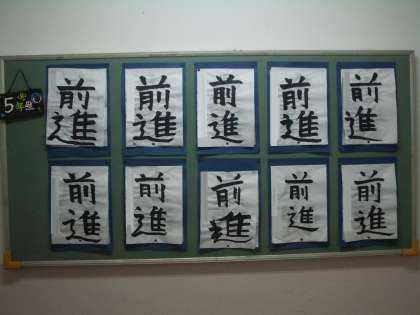 5年
前進
前進
前進
前進
前進
前進
前進
前進
前進
前進